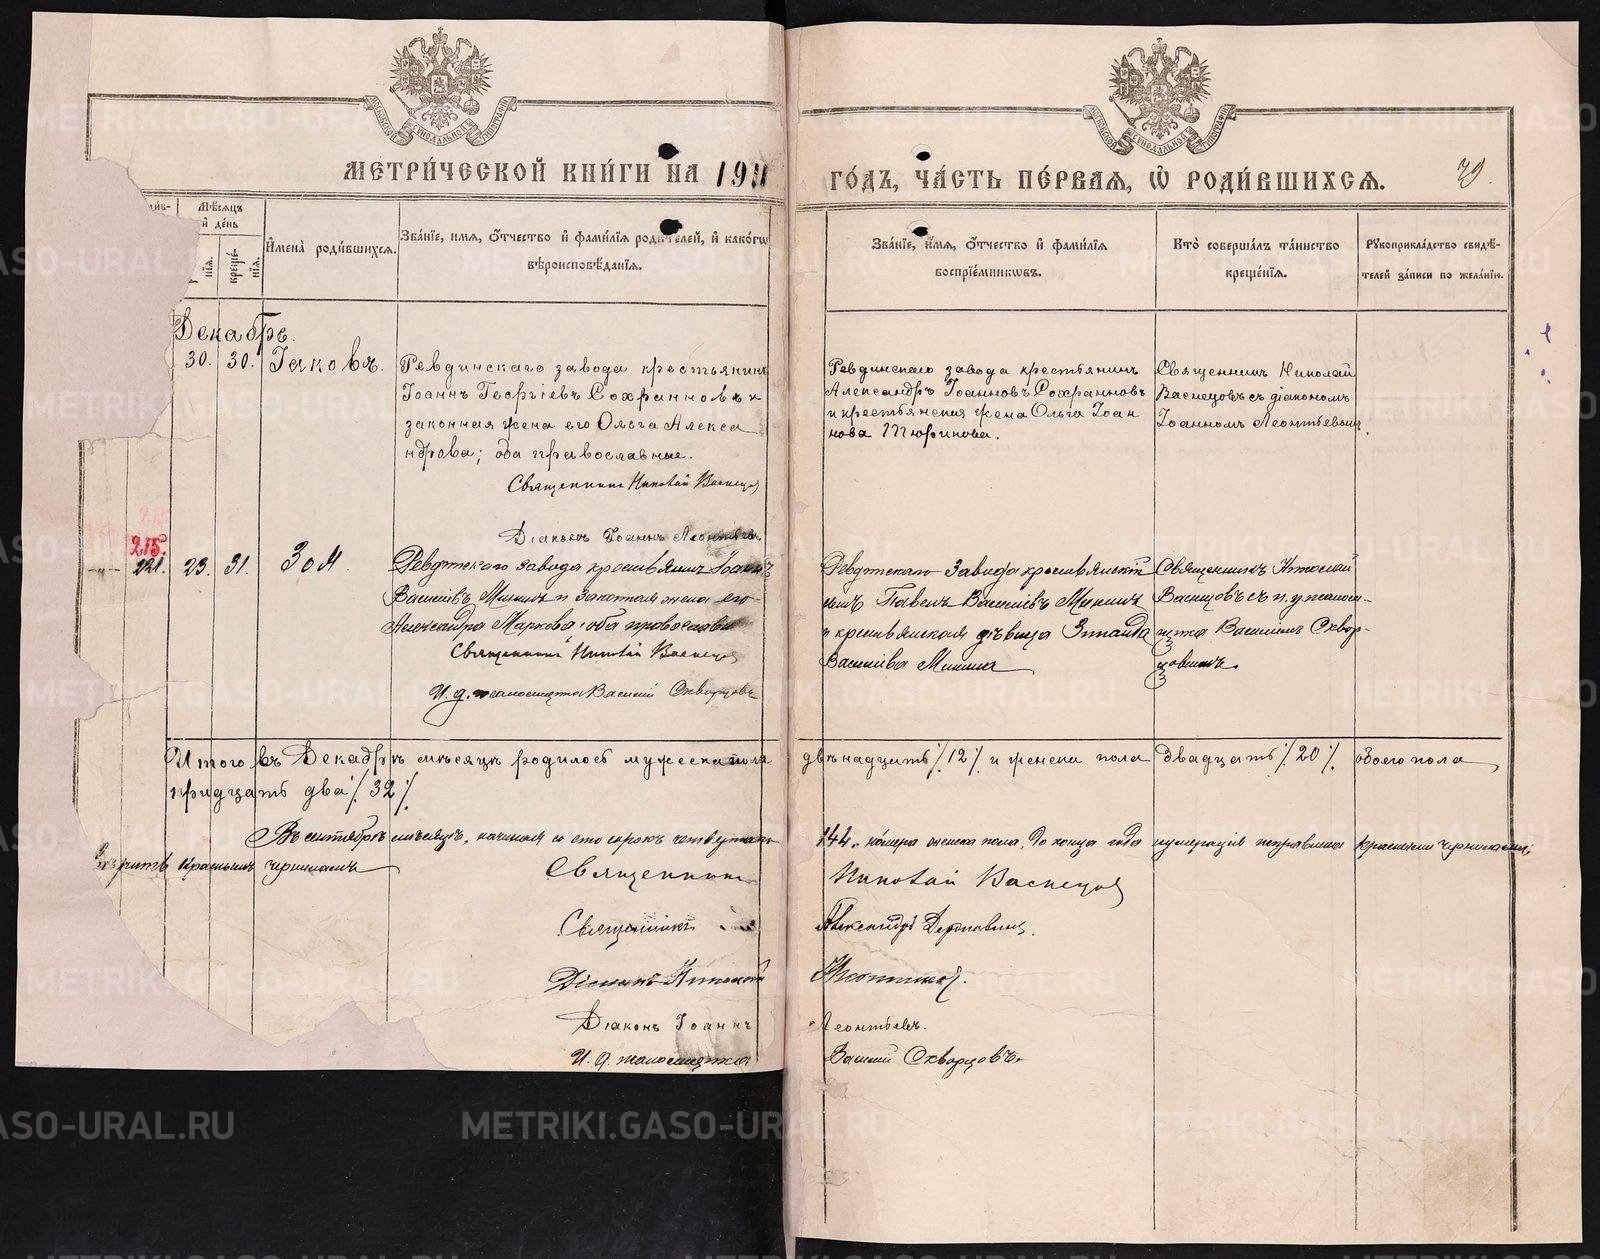 МОСКОВСКОЙ СѴНОДАЛЬНОЙ ТИПОГРАФІИ
МОСКОВСКОЙ СѴНОДАЛЬНОЙ ТИПОГРАФІИ
МЕТРИ́ЧЕСКОЙ КНИ́ГИ НА 1911
ГО́ДЪ, ЧА́СТЬ ПЕ́РВАЯ, Ѡ РОДИ́ВШИХСЯ.
79.
Мѣсяцъ
и де́нь
креще́-
нія.
Имена̀ роди́вшихся.
Зва́нїе, имя, о́тчество и фами́лїя роди́телей, и како́гѡ
вѣроисповѣ́данїя.
Зва́нїе, и́мя, о́тчество и фами́лїя
воспрїе́мникѡвъ.
Кто̀ соверша́лъ та́инство
креще́нїя.
Рꙋкоприкла́дство свидѣ́-
телей за́писи по жела́нїю.
Декабрь.
30. 30. Іаковъ.
Ревдинскаго завода крестьянинъ
Іоаннъ Георгіевъ Сохранновъ и
законная жена его Ольга Алекса
ндрова; оба православные.
Священникъ Николай Васнецов
Діаконъ Іоаннъ Леонтьевъ.
Ревдинскаго завода крестьянинъ
Александръ Іоанновъ Сохранновъ
и крестьянская жена Ольга Іоан
нова Тюрикова.
Священникъ Николай
Васнецовъ съ діакономъ
Іоанномъ Леонтьевым.
215.
221. 23. 31. Зоя
Ревдинскаго завода крестьянинъ Іоаннъ
Васильевъ Мининъ и законная жена его
Александра Маркова, оба православн
Священникъ Николай Васнецов
И. д. псаломщика Василій Скворцовъ
Ревдинскаго завода крестьянскій
сынъ Павелъ Васильевъ Мининъ
и крестьянская дѣвица Зинаида
Васильева Минина
Священникъ Николай
Васнецовъ съ и. д. псалом-
щика Василіемъ Сквор-
цовымъ.
Итого въ Декабрѣ мѣсяцѣ родилось мужеска пола
двѣнадцать /12/ и женска пола двадцать /20/ обоего пола
тридцать два /32/
Въ сентябрѣ мѣсяцѣ, начиная со сто сорокъ четвертаго
144. номера женска пола, до конца года нумерація исправлена красными чернилами,
красными чернилами
Священникъ Николай Васнецов
Священникъ Александръ Державинъ.
Діаконъ Николай
Діаконъ Іоаннъ Леонтьевъ.
И. д. псаломщика Василій Скворцовъ.
METRIKI.GASO-URAL.RU